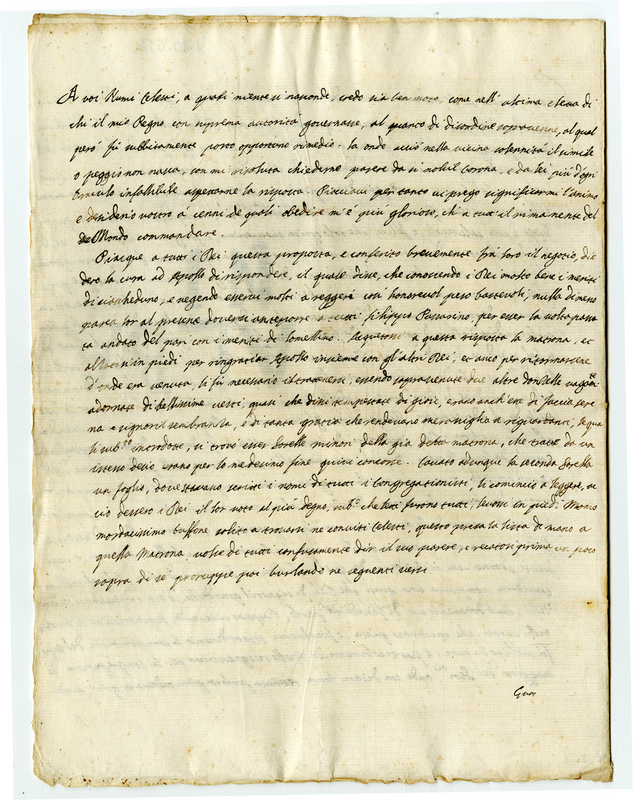 A voi Numi Celesti, a quali niente si nasconde, credo sia ben noto, come nell' ultima scena di
chi il mio Regno con suprema autorità governasse, al quanto di disordine sopravenne, al qual
però fù subbitamente porto opportuno rimedio. la onde acciò nella vicina solennità il simile
o peggio non nasca, con mi risoluta chiederne parere da sì nobil Corona, e da lei più d'ogni
Oracolo infallibile aspettarne la risposta. Piacciavi per tanto vi prego significarmi l'animo
e desiderio vostro a cenni de quali obedire m'è più glorioso, ch' a tutt' il rimanente del
Mondo commandare.
Piacque a tutti i Dei questa proposta, e conferito brevemente frà loro il negotio, die
dero la cura ad Apollo di rispondere, il quale disse, che conoscendo i Dei molto bene i meriti
di ciascheduno, e vegendo esservi molti a reggere così honorevol peso bastevoli; nulla di meno
parea lor al presente doversi anteporre a tutti Filippo Passarino, per esser la volta passa
ta andato del pari con i meriti di Lomellino. S'acquetò a questa risposta la matrona, et
alzatasi in piedi per ringratiar Apollo insieme con gli altri Dei, et anco per ritornarsene
d'onde era venuta, li fù necessario il trattenersi, essendo sopravenute due altre donzelle vagamte
adornate di bellissime vesti, quasi che di mi tempestate di gioie, erano anch' esse di faccia sere
na e signoril sembianza, e di tanta gratia che rendevano meraviglia a riguardanti, le qua
li subo inchinatosi, si trovò esser Sorelle minori della già detta matrona, che tratte da un
istesso desio erano per lo medesimo fine quivi concorse. Cavato adunque la seconda Sorella
un foglio, dove stavano scritti i nomi di tutti i Congregationisti, li cominciò a leggere, ac
ciò dessero i Dei il lor voto al più degno, subo che letti furono tutti, levossi in piedi Momo
mordacissimo buffone solito a trovarsi ne conviti Celesti, questo presa la lista di mano a
quella Matrona volse di tutti confusamente dir il suo parere, e recatosi prima un poco
sopra di se proruppe poi burlando ne seguenti versi